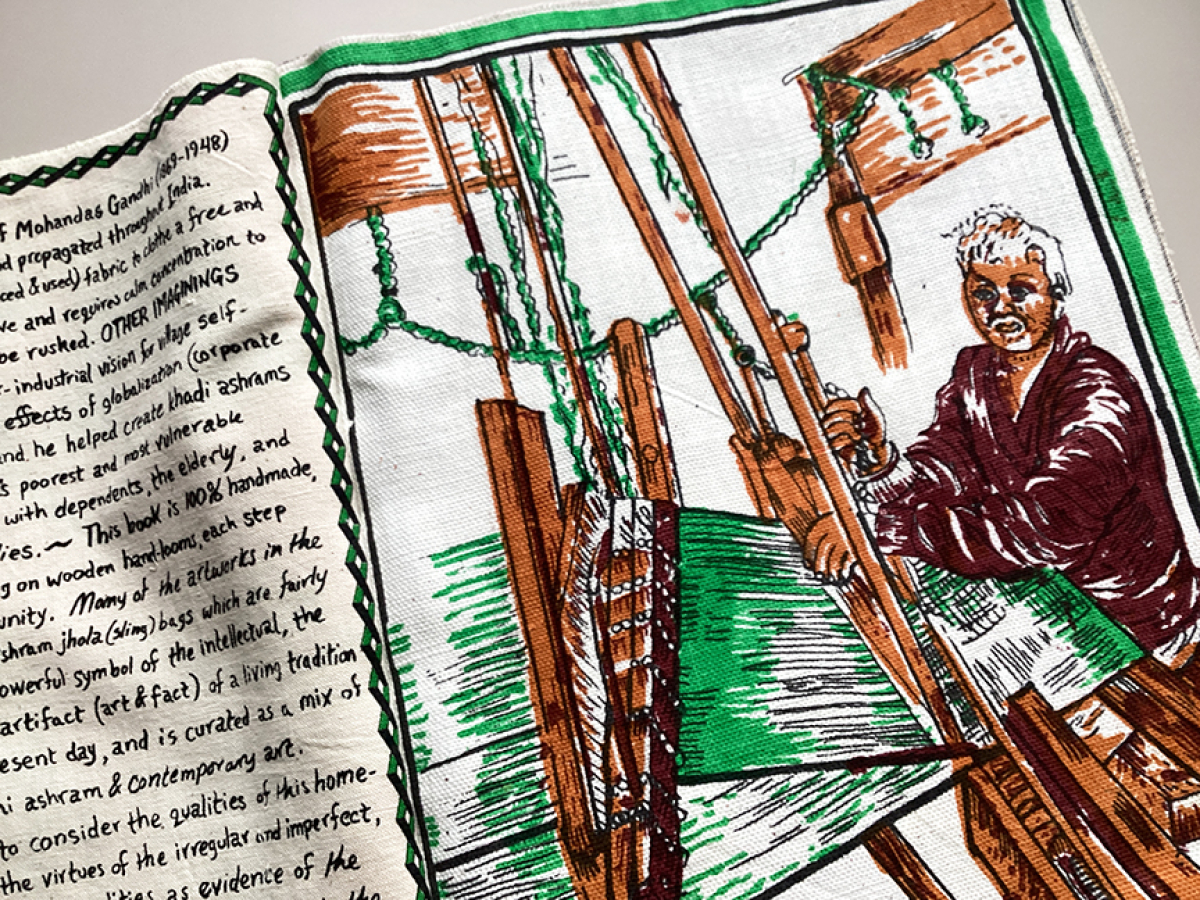 f Mohandas Gandhi (1869-1948)
d propagated throughout India.
ced & used) fabric to clothe a free and
ve and requires calm concentration to
be rushed. OTHER IMAGININGS
-industrial vision for village self-
effects of globalization (corporate
and he helped create khadi ashrams
s poorest and most vulnerable
with dependents, the elderly, and
ies. ~ This book is 100% handmade,
g on wooden hand-looms, each step
unity. Many of the artworks in the
shram jhola (sling) bags which are fairly
owerful symbol of the intellectual, the
artifact (art & fact) of a living tradition
esent day, and is curated as a mix of
hi ashram & contemporary art.
to consider the qualities of this home-
the virtues of the irregular and imperfect,
lities as evidence of the
the